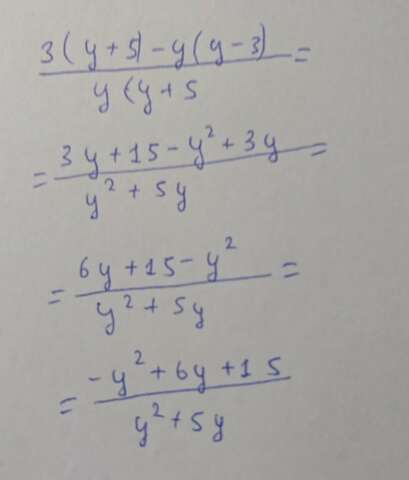 3(y+5)-y(y-3)/y(y+5 =
= 3y+15-y²+3y/y²+5y =
= 6y+15-y²/y²+5y =
= -y²+6y+15/y²+5y